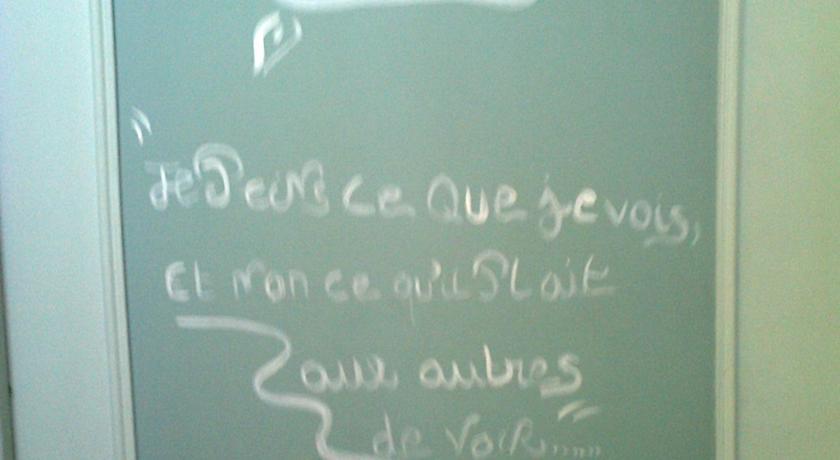 "Je Peins ce Que je vois,
Et non ce qu'il Plait
aux autres"
de voir.....